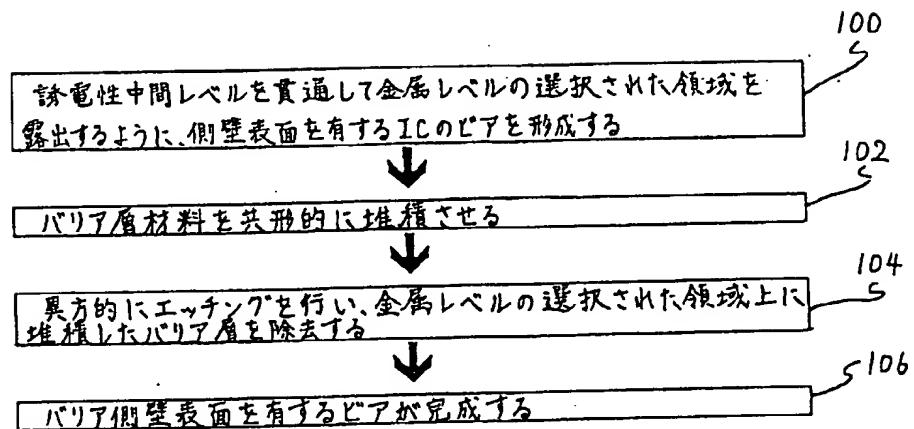 100
誘電性中間レベルを貫通して金属レベルの選択された領域を
露出するように、側壁表面を有するICのビアを形成する
102
バリア層材料を共形的に堆積させる
104
異方的にエッチングを行い、金属レベルの選択された領域上に
堆積したバリア層を除去する
106
バリア側壁表面を有するビアが完成する